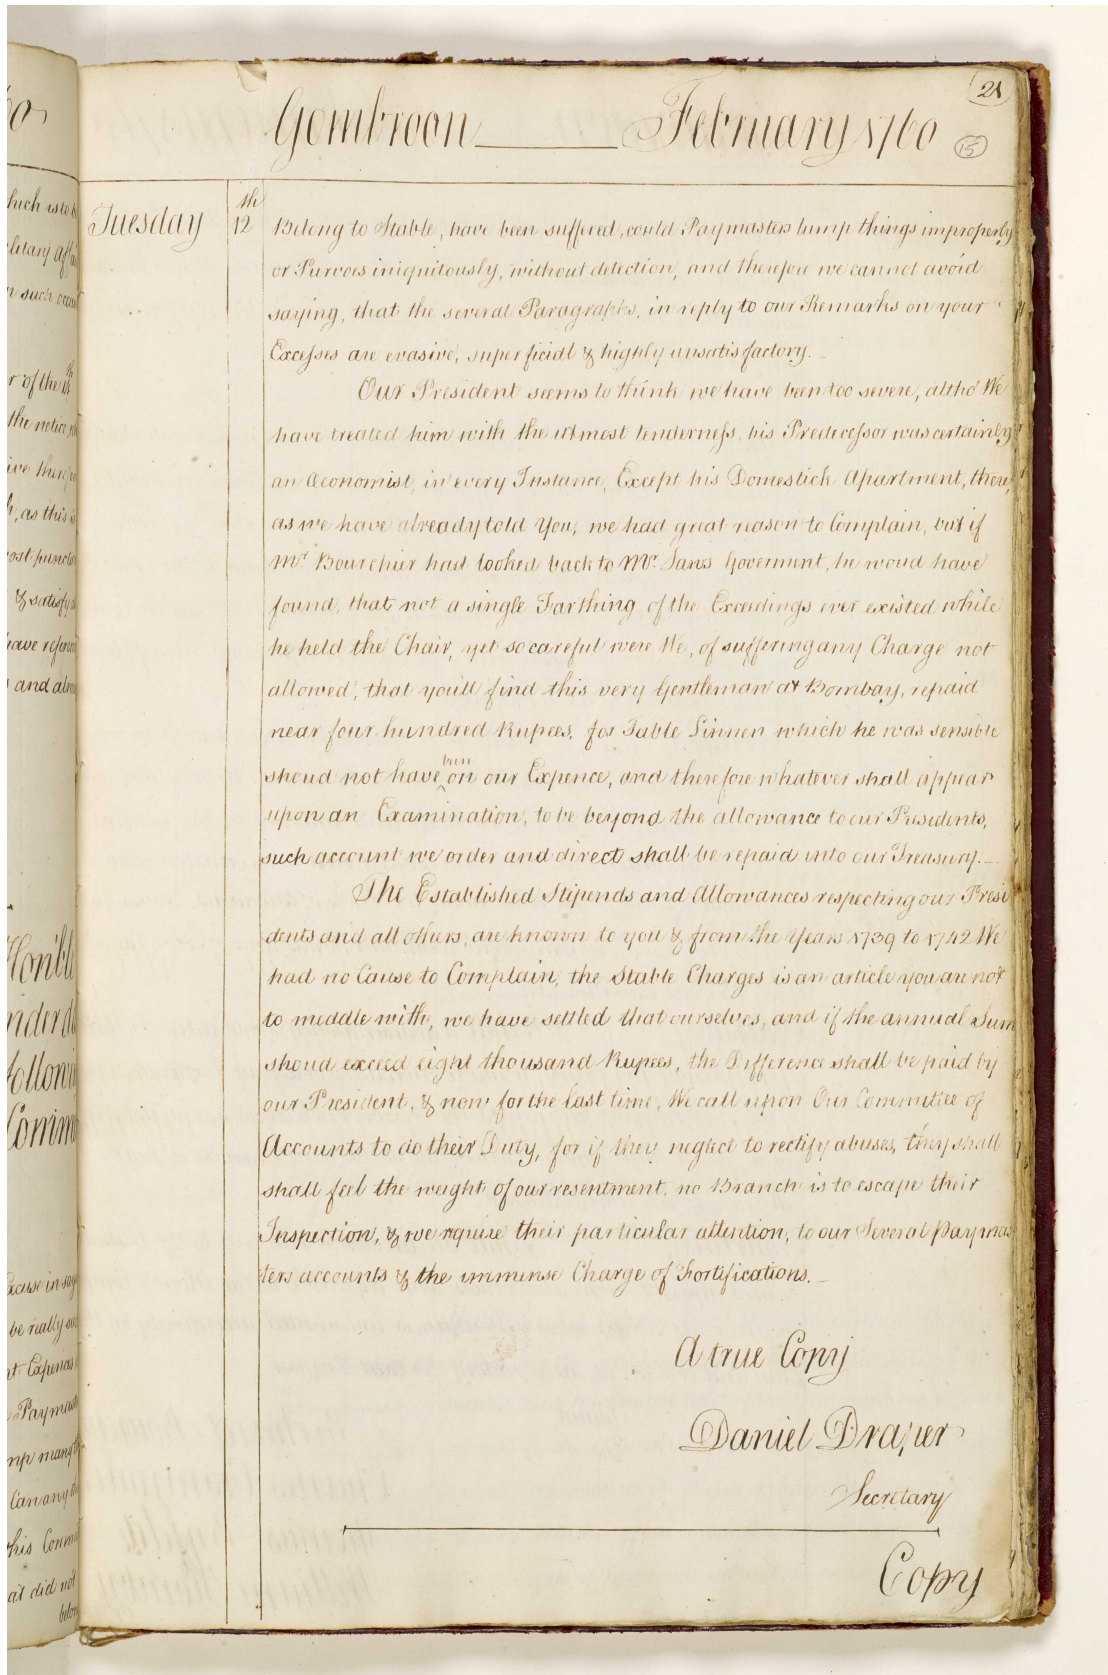 21
Gombroon February 1760
15
Tuesday 12th Belong to Stable, have been suffered, could Paymasters lump things improperly
or Purvoes iniquitously, without detection, and therefore we cannot avoid
saying, that the several Paragraphs, in reply to our Remarks on your
Excesses are evasive, superficial & highly unsatisfactory.
Our President seems to think we have been too severe, altho' We
have treated him with the utmost tenderness, his Predecessor was certainly
an Æconomist, in every Instance, Except his Domestick Apartment, there,
as we have already told You, we had great reason to Complain, but if
Mr. Bourchier had looked back to Mr. Laws Goverment, he woud have
found, that not a single Farthing of the Exceedings ever existed while
he held the Chair, yet so careful were We, of suffering any Charge not
allowed, that you'll find this very Gentleman at Bombay, repaid
near four hundred Rupees, for Table Linnen which he was sensible
shoud not have been on our Expence, and therefore whatever shall appear
upon an Examination, to be beyond the allowance to our Presidents,
such account we order and direct shall be repaid into our Treasury.
The Established Stipends and Allowances respecting our Presi
dents and all others, are known to you & from the Years 1739 to 1742 We
had no Cause to Complain, the Stable Charges is an article you are not
to meddle with, we have settled that ourselves, and if the annual Sum
shoud exceed eight thousand Rupees, the Difference shall be paid by
our President, & now for the last time, We call upon Our Committee of
Accounts to do their Duty, for if they neglect to rectify abuses, they shall
shall feel the weight of our resentment, no Branch is to escape their
Inspection, & we require their particular attention, to our Several Paymas
ters accounts & the immense Charge of Fortifications.
A true Copy
Daniel Draper
Secretary
Copy